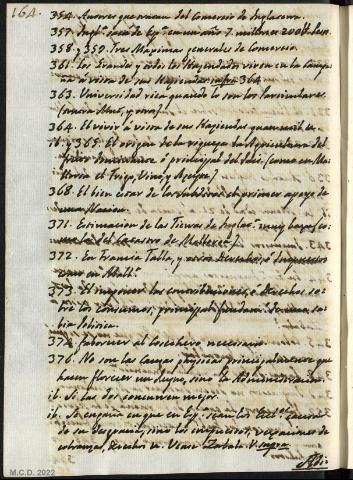 164.
354. Autores que tratan del Comercio de Inglaterra.
357. Ingla.ª saca de Esp.ª en un año 7. millones 200 @
358. y 359. Tres Maximas generales de Comercio.
361. Los Grandes y todos los Hacendados viven en la Campa
ña à vista de sus Haciendas infra 364
363. Universidad rica quando lo son los Particulares.
364. El vivir à vista de sus Haciendas quan util es.
ib. y 365. El origen de la riqueza la Agricultura del
fruto ò principal del Pais. (como en Ma
llorca el Trigo, Vino, y Aceyte)
368. El bien estar de los subditos el primer apoyo de
una Nacion.
371. Estimacion de las Tierras de Ingla.ª muy baja (co
mo la del Catastro de Mallorca)
372. En Francia Talla, y otros Derechos, è Impuestos
como en Mall.ª
373. El imponer las contribuciones, ò Derechos so
bre los Consumos, principal fundam.to de una sa
bia Politica.
374. favorecer al Cosechero, necesario.
376. No son las causas physicas principalmente que
hacen florecer un Reyno, sino la Administracion.
ib. Si las dos concurren mejor.
ib. Se engaña en que en Esp.ª sean los Ecc.os causa
de su desgracia, sino los impuestos, vexaciones de
cobranza, Derechos &. Vease Zabala V. supra.
M.C.D. 2022